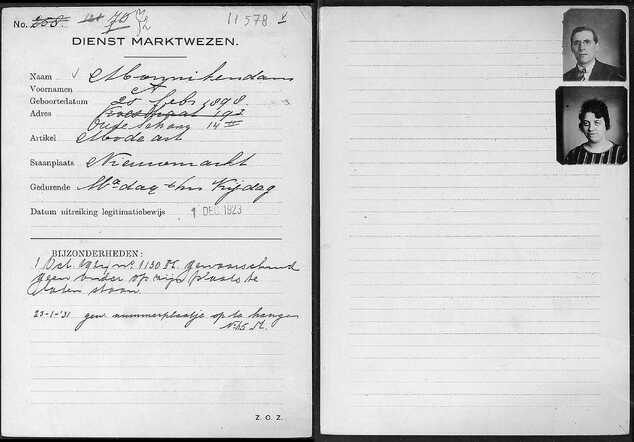 No. 258. 70 11578 v
DIENST MARKTWEZEN.
Naam v Monnikendam
Voornamen A
Geboortedatum 20 Febr. 1898.
Adres
Oude Schans 14 III
Artikel Mode art
Staanplaats Nieuwmarkt
Gedurende Maandag t/m Vrijdag
Datum uitreiking legitimatiebewijs 1 DEC. 1923
BIJZONDERHEDEN:
1 Oct. No. 1130 St. gewaarschuwd
geen ander op zijn plaats te
laten staan.
23-1-'31 gew. nummerplaatje op te hangen
No. 65 St.
Z. O. Z.